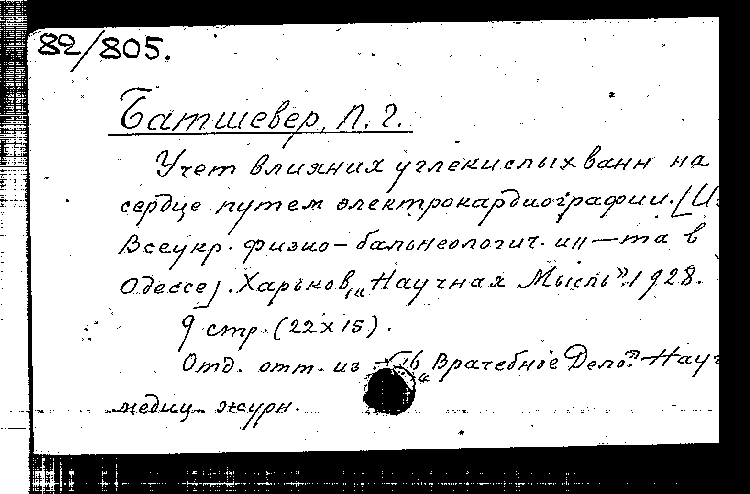 82/805.
Батшевер, Л. Г.
Учет влияния углекислых ванн на
сердце путем электрокардиографии. (Из
Всеукр. физио-бальнеологич. ин-та в
Одессе). Харьков, „Научная Мысль", 1928.
9 стр. (22х15).
Отд. отт. из „Врачебное Дело". Науч
медиц. журн.